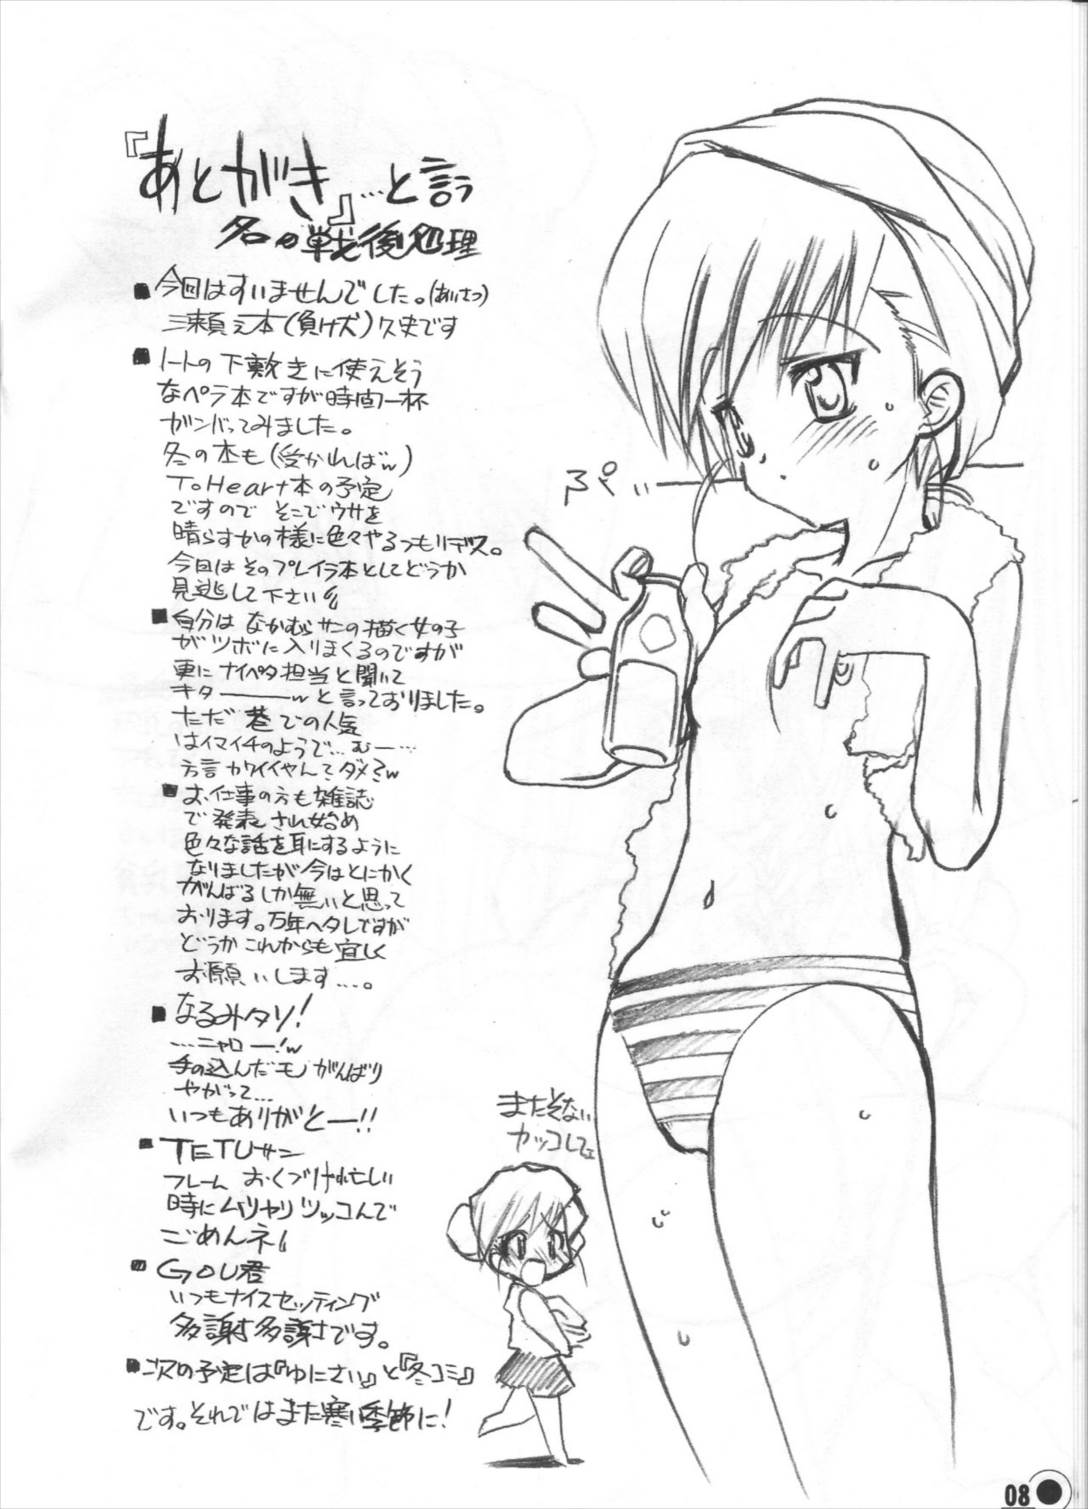 『あとがき』…と言う
名の戦後処理
■今回はすいませんでした。(あいさつ)
三瀬元本(負け犬)久史です
■ノートの下敷きに使えそう
なペラ本ですが時間一杯
ガンバってみました。
冬の本も(受かればw)
ToHeart本の予定
ですので そこでウサを
晴らすかの様に色々やるつもりデス。
今回はそのプレイラ本としてどうか
見逃して下さい
■自分は なかむらサンの描く女の子
がツボに入りまくるのですが
更に ナイペタ担当と聞いて
キター――wと言っておりました。
ただ 巷での人気
はイマイチのようで…むー…
方言カワイイやんてダメ?w
■お仕事の方も雑誌
で発表され始め
色々な話を耳にするように
なりましたが今はとにかく
がんばるしか無いと思って
おります。万年ヘタレですが
どうかこれからも宜しく
お願いします…。
■なるみタソ!
…ニャロー!w
手の込んだモノ がんばり
やがって…
いつもありがとー!!
■TETUサン
フレーム おくづけ忙しい
時にムリヤリツッコんで
ごめんネ
■GOU君
いつもナイスセッティング
多謝多謝です。
■次の予定は『ゆにさい』と『冬コミ』
です。それではまた寒い季節に!
ぷぐい
またそない
カッコしてェ
08